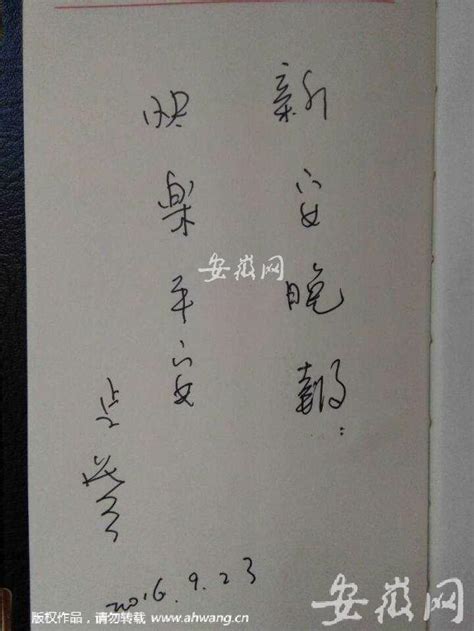 新安晚报:
快楽平安
2016.9.23
安徽网
版权作品，请勿转载 www.ahwang.cn
安徽网